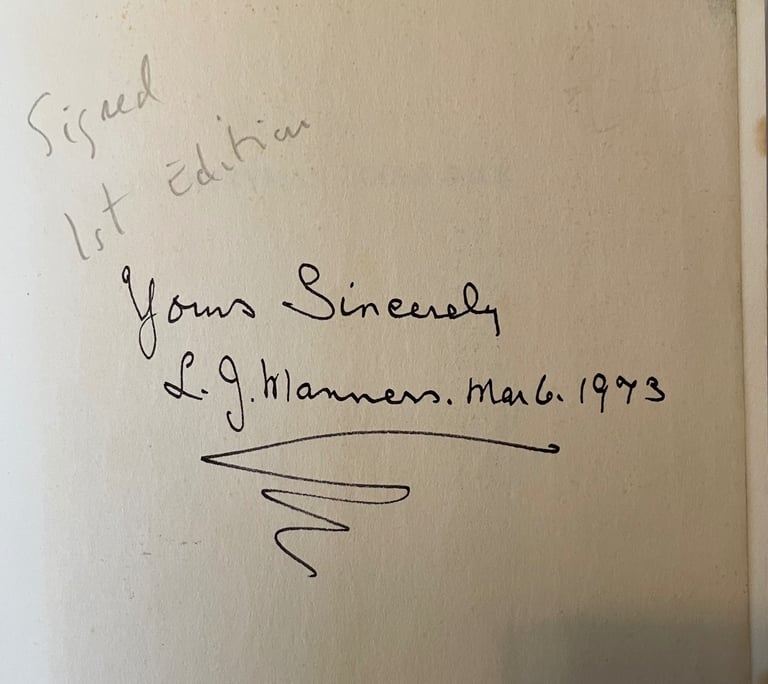 Signed
1st Edition
Yours Sincerely
L. J. Manners. Mar 6. 1973